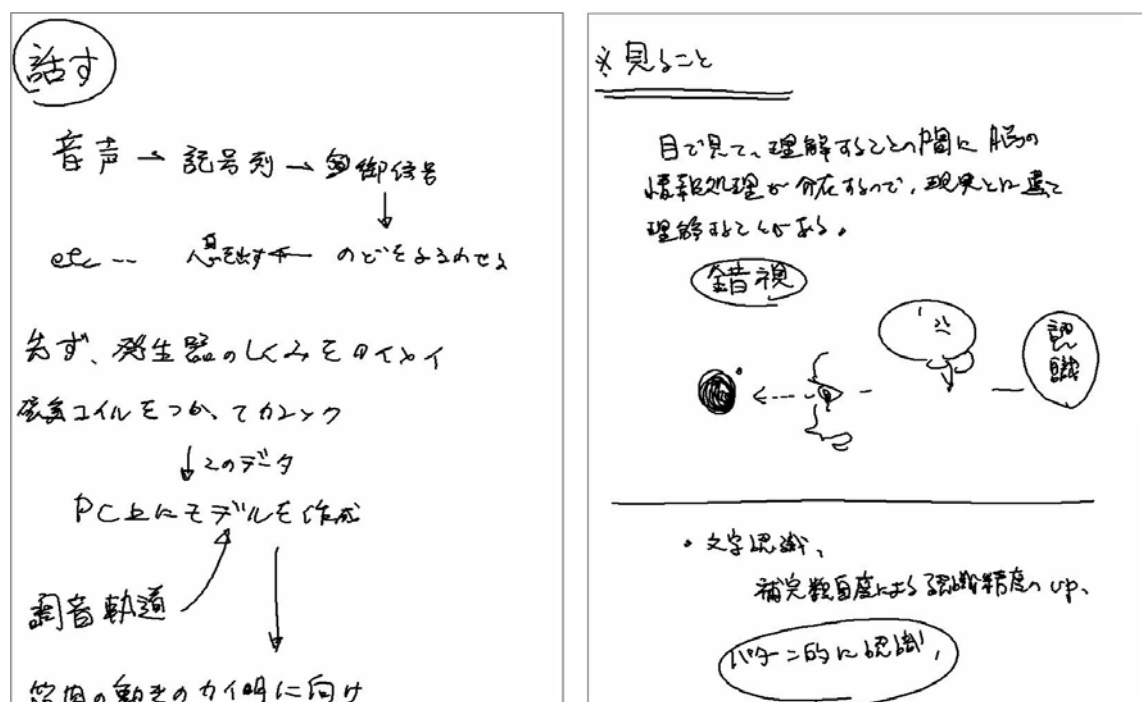 話す
音声 → 記号列 → 制御信号
etc … 息を出す ← のどをふるわせる
先ず、発生器のしくみをカイメイ
磁気コイルをつかってカンソク
このデータ
PC上にモデルを作成
調音軌道
筋肉の動きのカイ明に向け
※見ること
目で見て、理解することの間に脳の
情報処理が介在するので、現実とは違って
理解することがある。
錯視
認識
・文字認識、
補完 による認識精度のup、
パターン的に認識、